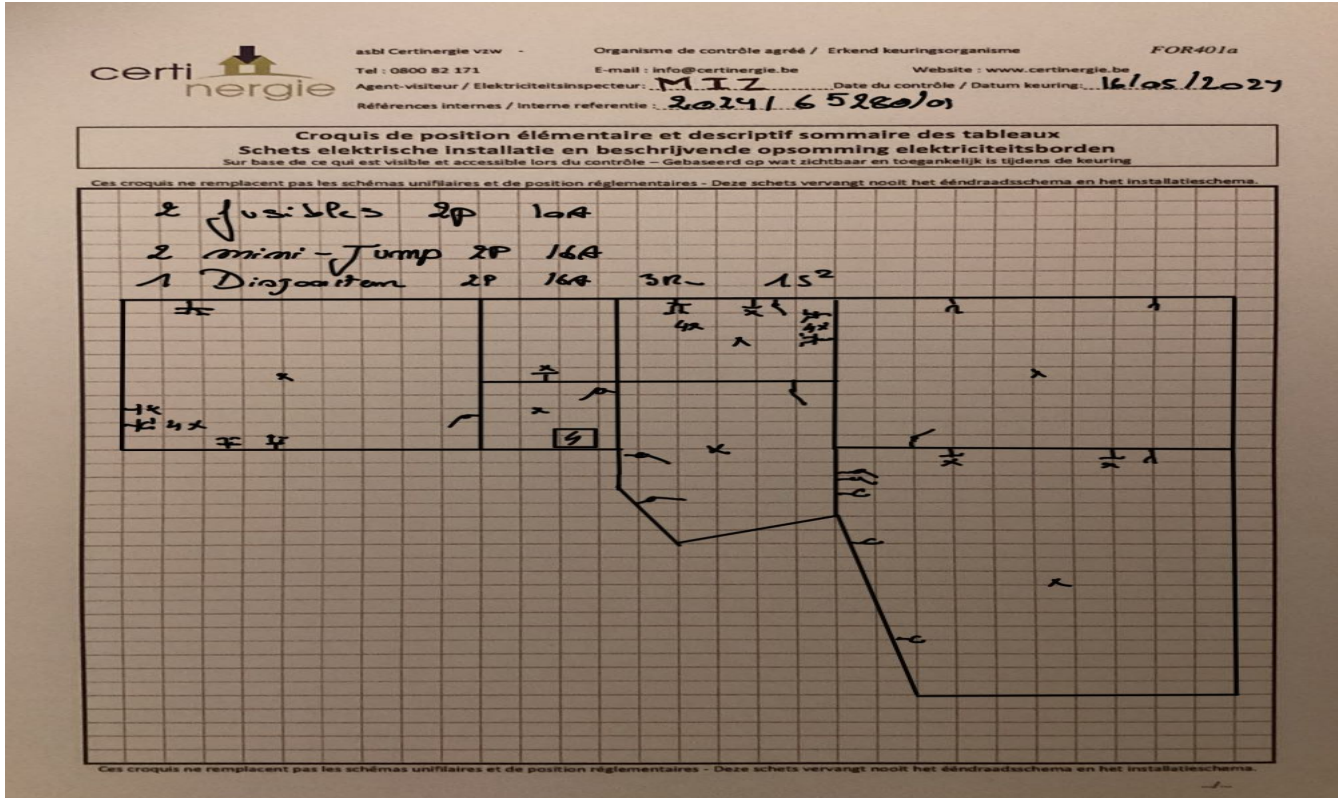 certinergie
asbl Certinergie vzw - Organisme de contrôle agréé / Erkend keuringsorganisme FOR401a
Tel : 0800 82 171 E-mail : info@certinergie.be Website : www.certinergie.be
Agent-visiteur / Elektriciteitsinspecteur: MIZ Date du contrôle / Datum keuring: 16/05/2024
Références internes / Interne referentie : 2024/65280/01
Croquis de position élémentaire et descriptif sommaire des tableaux
Schets elektrische installatie en beschrijvende opsomming elektriciteitsborden
Sur base de ce qui est visible et accessible lors du contrôle – Gebaseerd op wat zichtbaar en toegankelijk is tijdens de keuring
Ces croquis ne remplacent pas les schémas unifilaires et de position réglementaires - Deze schets vervangt nooit het ééndraadsschema en het installatieschema.
2 fusibles 2P 10A
2 mini-Jump 2P 16A
1 2P 16A
4x
4x
4x
Ces croquis ne remplacent pas les schémas unifilaires et de position réglementaires - Deze schets vervangt nooit het ééndraadsschema en het installatieschema.